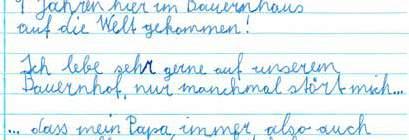 9 Jahren hier im Bauernhaus
auf die Welt gekommen!
Ich lebe sehr gerne auf unserem
Bauernhof, nur manchmal stört mich...
... dass mein Papa, immer, also auch